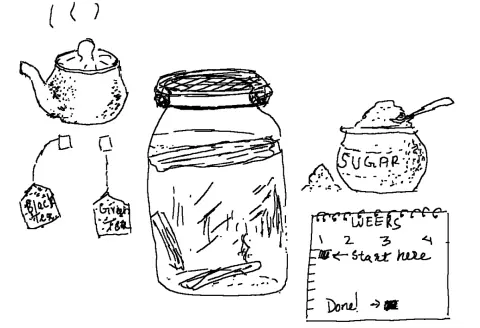 Black
Tea
Green
TEA
SUGAR
WEEKS
1 2 3 4
← Start here
Done! →